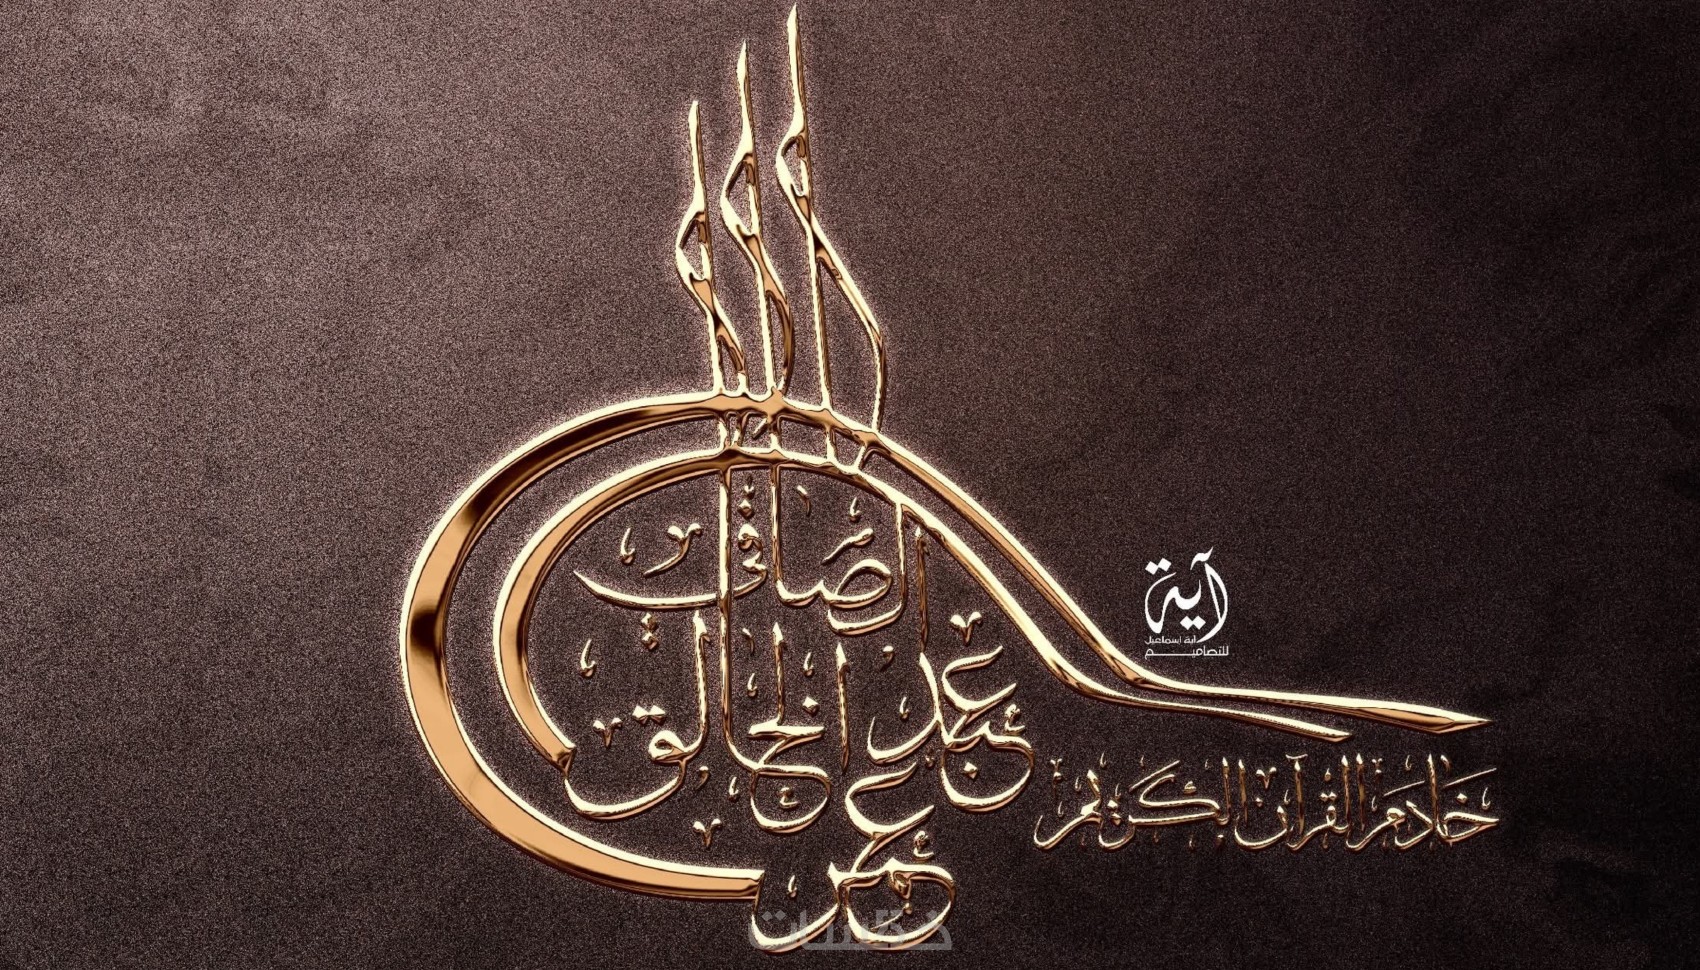 عمر
عبد الخالق
الصافي
خادم القرآن الكريم
آية
آية اسماعيل
للتصاميم
خمسات